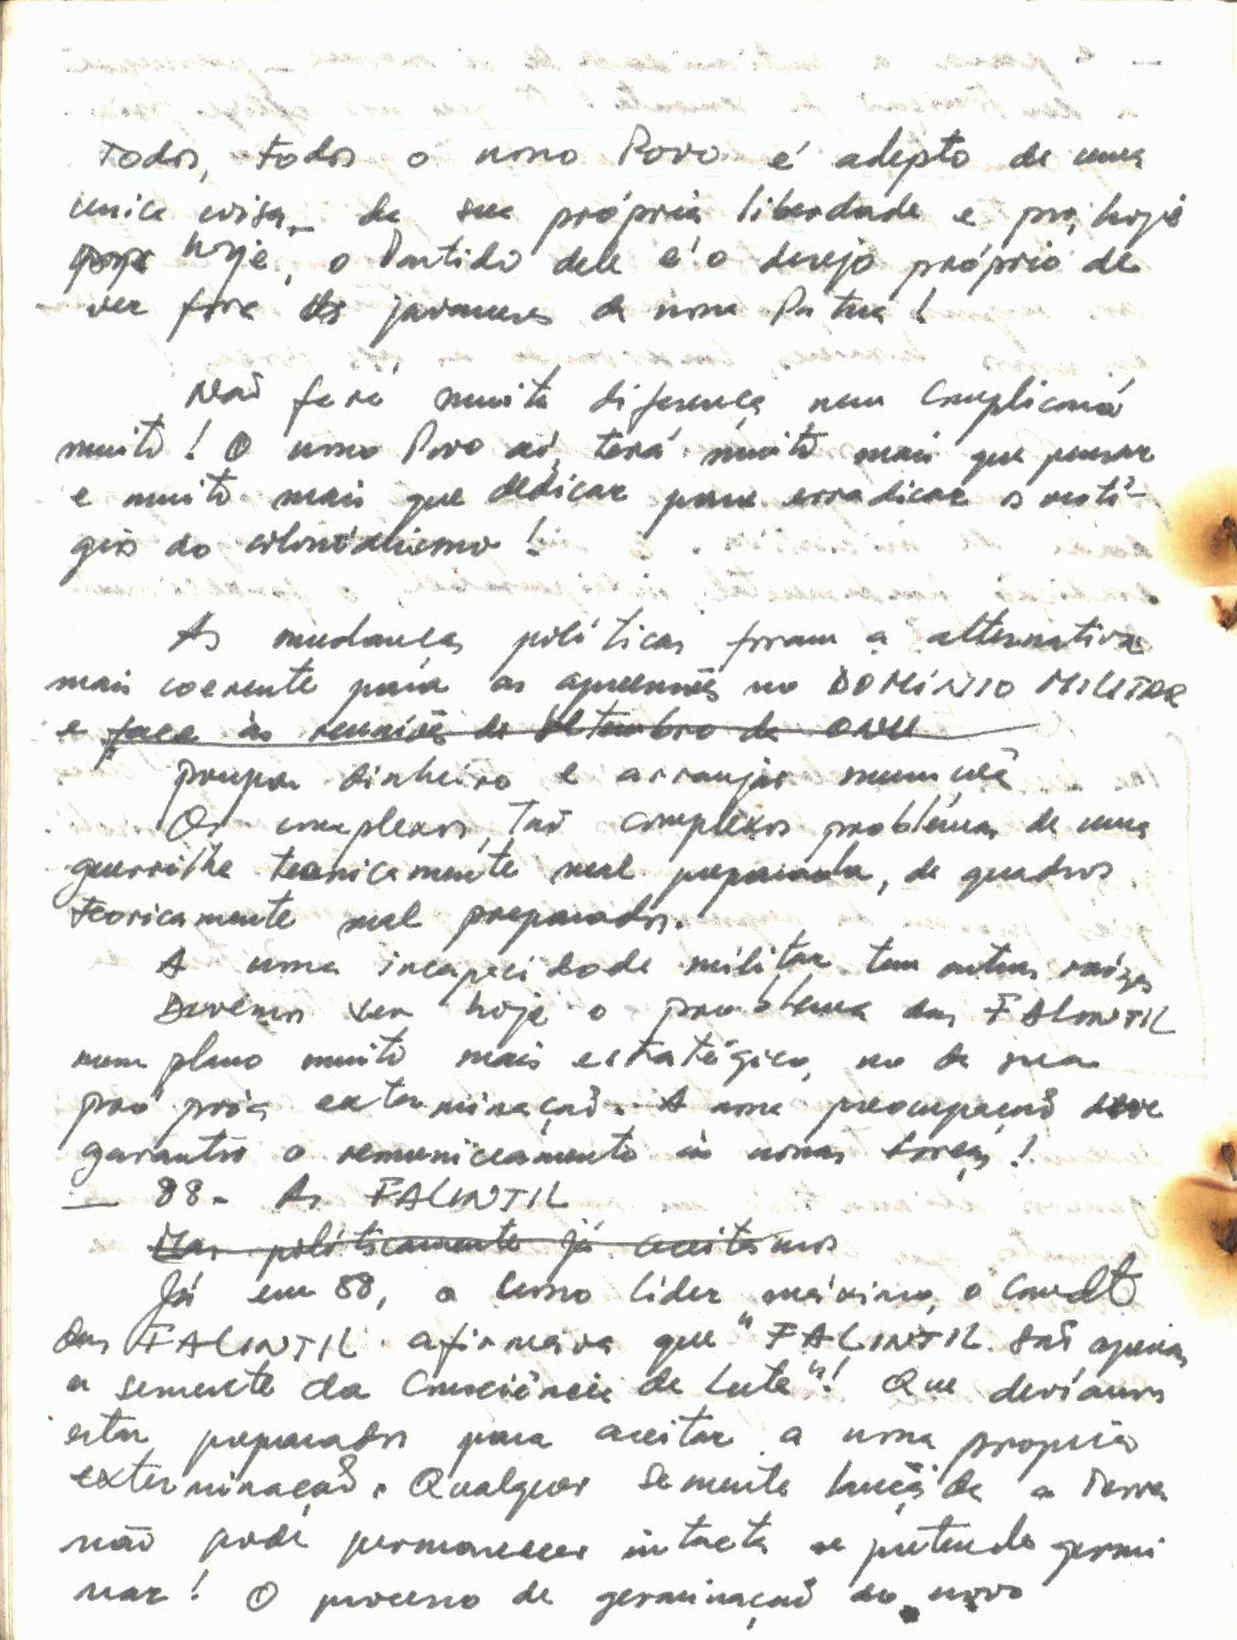 Todos, todos o nosso Povo é adepto de uma
unica coisa, da sua própria liberdade e por, hoje
hoje, o Partido dele é o desejo próprio de
ver fora os javaneses da nossa Pátria!
Não fará muita diferença nem complicará
muito! O nosso Povo aí, terá muito mais que pensar
e muito mais que dedicar para erradicar os vestí-
gios do colonialismo!
As mudanças políticas foram a alternativa
mais coerente para as apreensões no DOMÍNIO MILITAR
e face às reuniões de Setembro de
poupar dinheiro e arranjar munições
Os complexos, tão complexos problemas de uma
guerrilha tecnicamente mal preparada, de quadros
teoricamente mal preparados.
A nossa incapacidade militar tem outras raízes
Devemos ver hoje o problema das FALINTIL
num plano muito mais estratégico, no da sua
própria exterminação. A nossa preocupação deve
garantir o remuniciamento às nossas forças!
— 88- As FALINTIL
Mas politicamente já aceitamos
Já em 88, o nosso líder máximo, o Comdt
das FALINTIL afirmava que "FALINTIL são apenas
a semente da Consciência de Luta"! Que devíamos
estar preparados para aceitar a nossa própria
exterminação. Qualquer semente lançada à Terra
não pode permanecer intacta se pretende germi
nar! O processo de germinação do novo